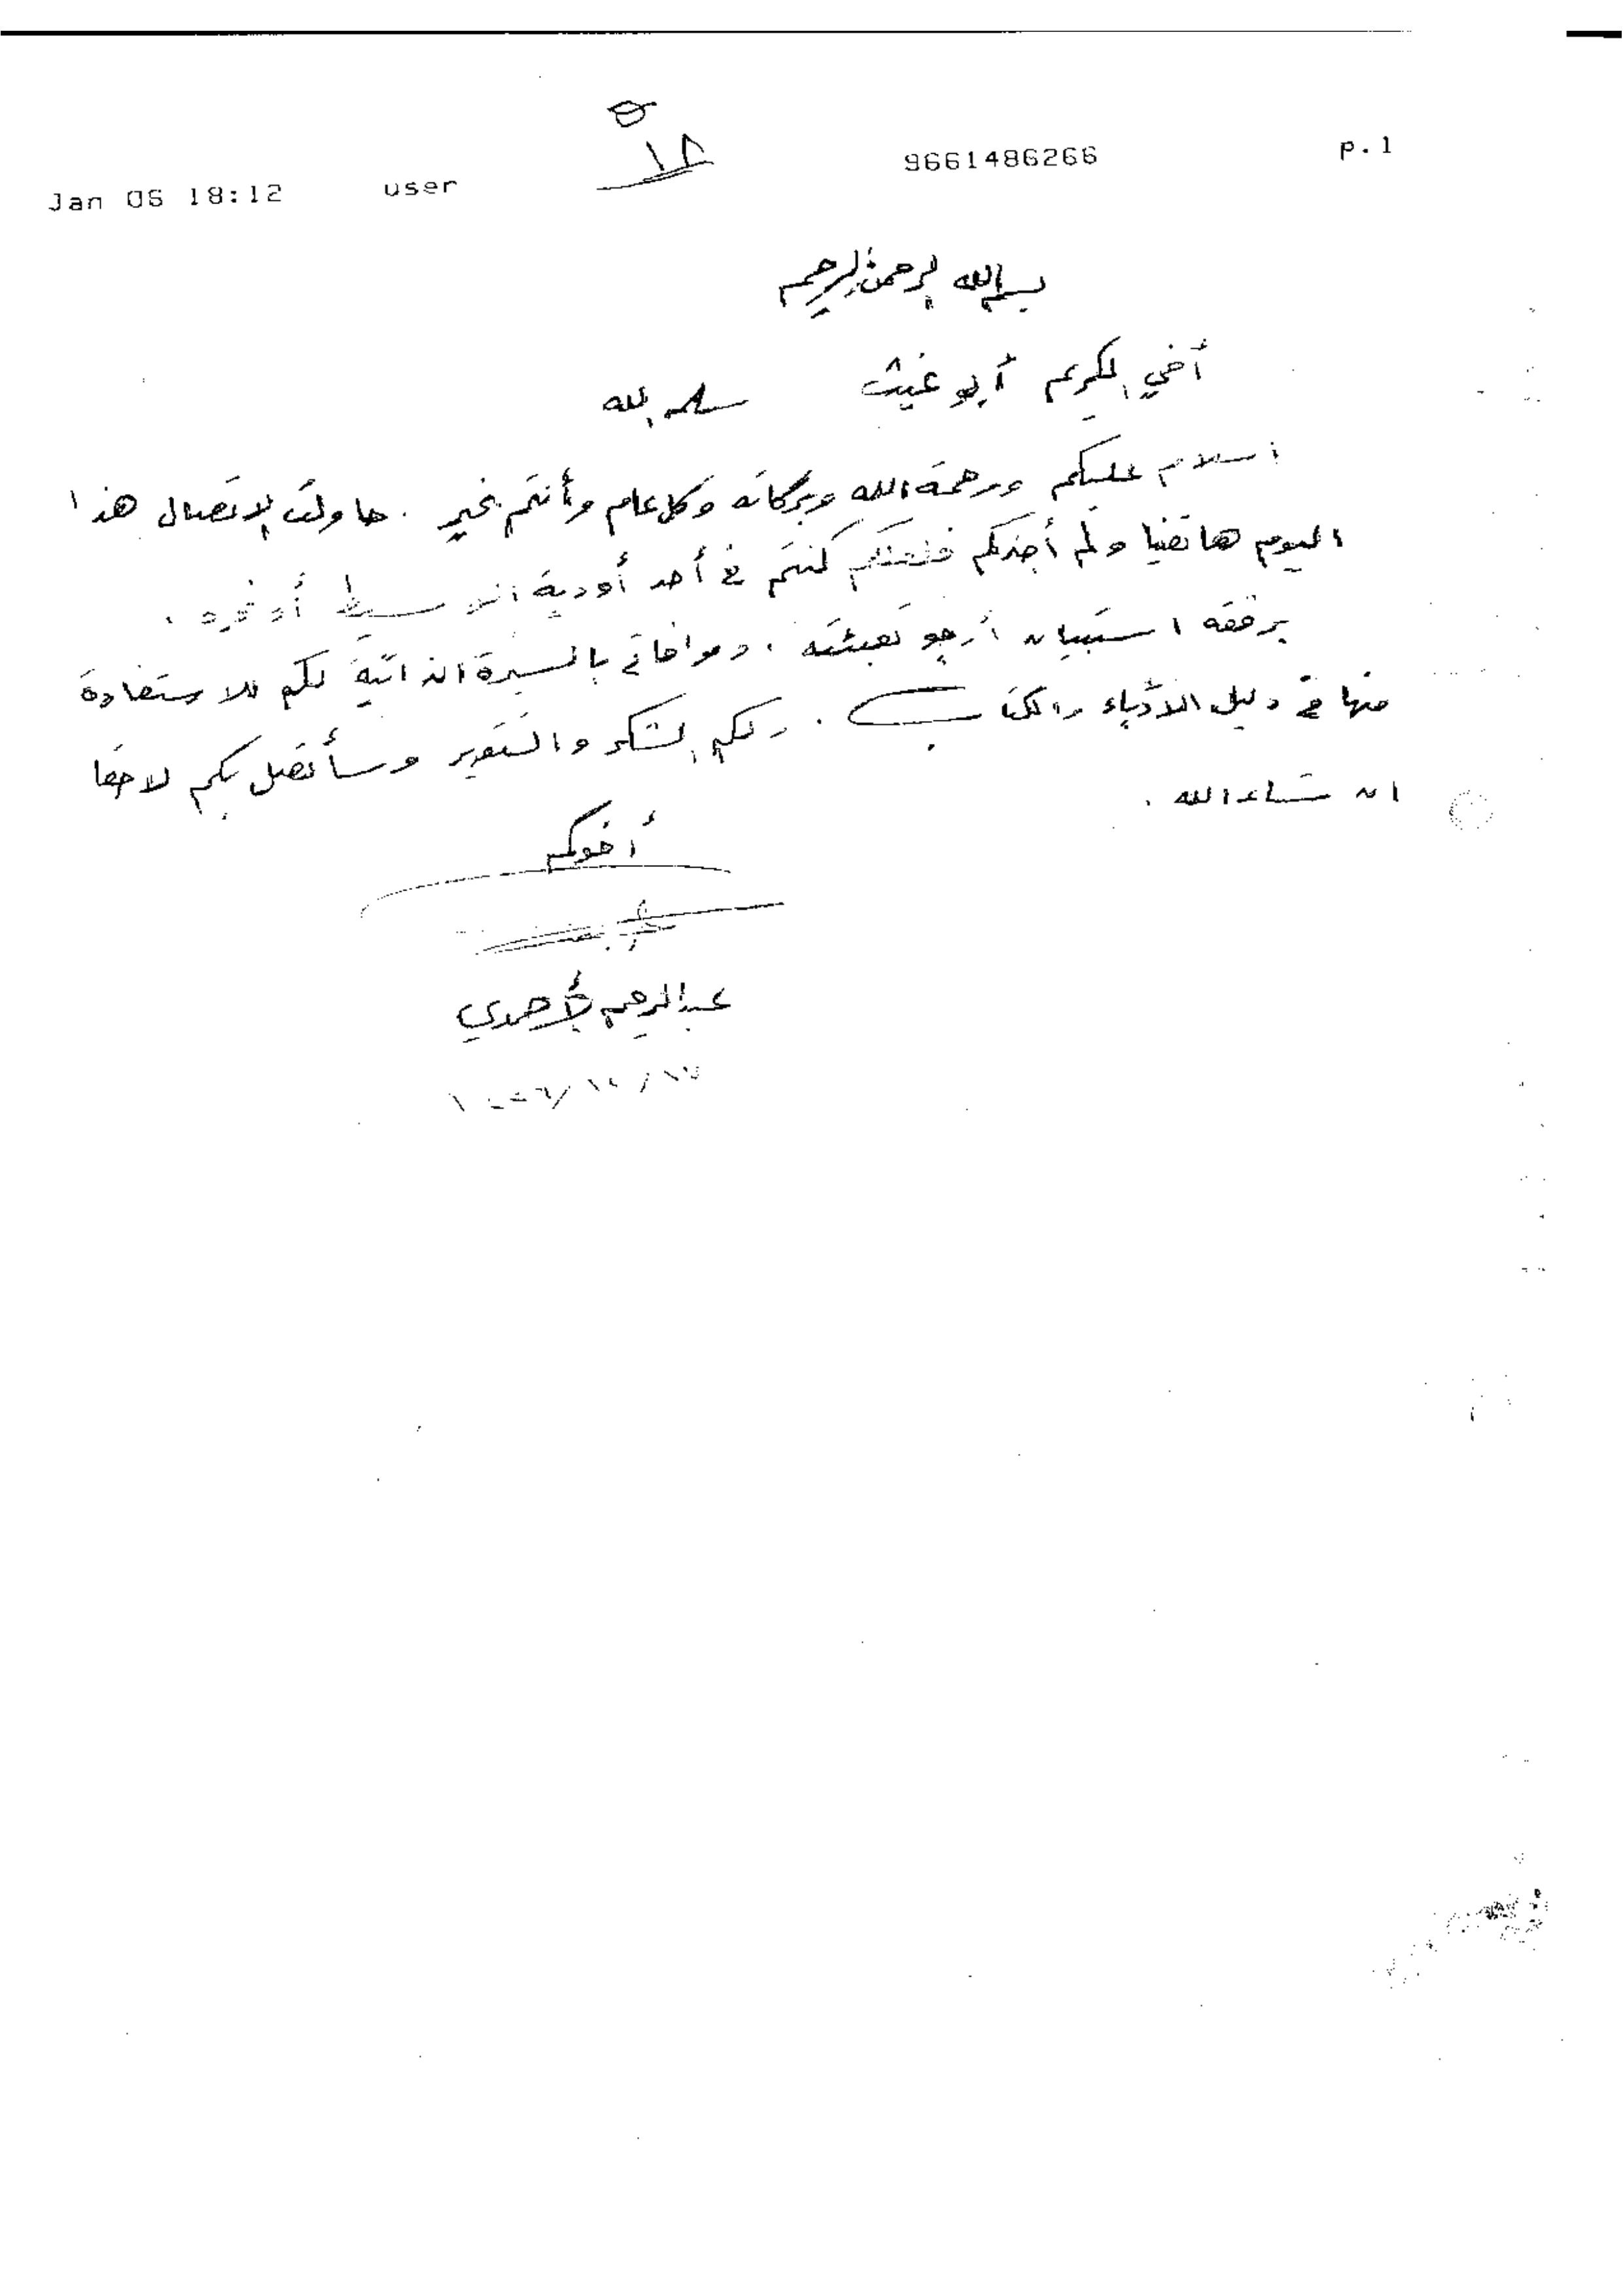 Jan 06 18:12 user 9661486266 p.1
بسم الله الرحمن الرحيم
أخي الكريم أبو غيث سلمه الله
السلام عليكم ورحمة الله وبركاته وكل عام وأنتم بخير . حاولت الاتصال هذا
اليوم هاتفيا ولم أجدكم فلعلكم كنتم في أحد أودية أو نحوه .
برفقه استبيان أرجو تعبئته ، وموافاتي بالسيرة الذاتية لكم للاستفادة
منها في دليل الأدباء والكتاب . ولكم الشكر والتقدير وسأتصل بكم لاحقا
ان شاء الله .
أخوكم
عبدالرحيم الأحمدي